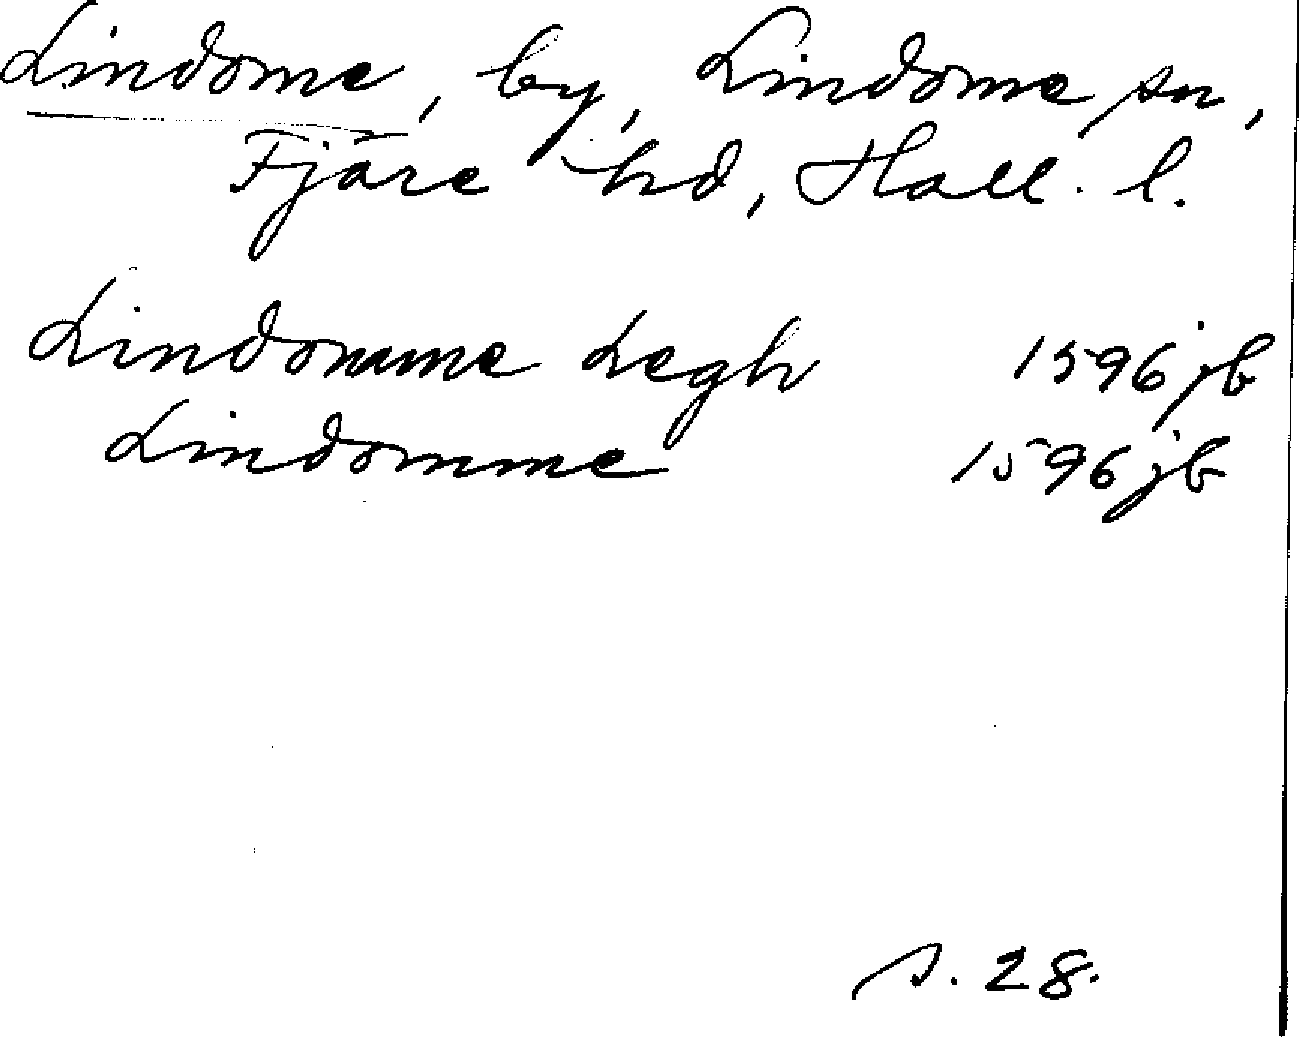 Lindome, by, Lindome sn,
Fjäre hd, Hall. l.
Lindomme Legh 1596 jb
Lindomme 1596 jb
s. 28.